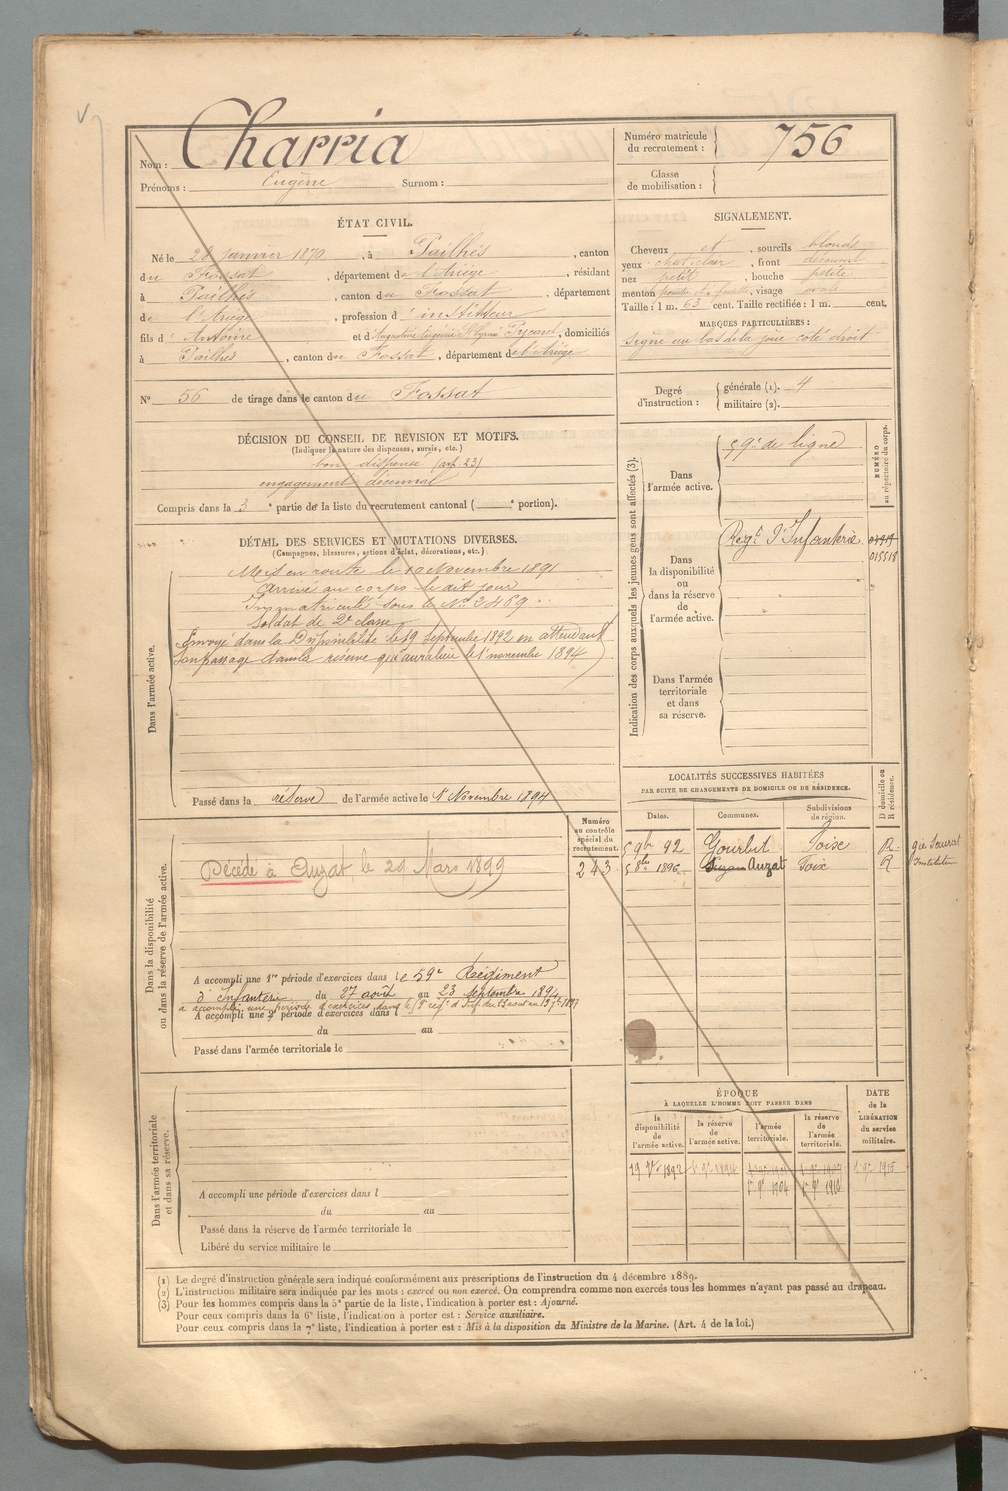 Nom : Charria
Prénoms : Eugène Surnom :
Numéro matricule du recrutement : 756
Classe de mobilisation :
ÉTAT CIVIL.
Né le 28 janvier 1870, à Pailhès, canton
du Fossat, département de l'Ariège, résidant
à Pailhès, canton du Fossat, département
de l'Ariège, profession d'instituteur
fils d'Antoine et d'Augustine Eugénie Pycard, domiciliés
à Pailhès, canton du Fossat, département de l'Ariège
N° 56 de tirage dans le canton du Fossat
SIGNALEMENT.
Cheveux et sourcils blonds
yeux chat. clair, front découvert
nez petit, bouche petite
menton pointu et, visage ovale
Taille : 1 m. 63 cent. Taille rectifiée : 1 m. cent.
MARQUES PARTICULIÈRES :
signe au bas de la joue coté droit
Degré d'instruction : générale (1). 4
militaire (2).
DÉCISION DU CONSEIL DE REVISION ET MOTIFS.
(Indiquer la nature des dispenses, sursis, etc.)
bon dispensé (art. 23)
engagement décennal
Compris dans la 3e partie de la liste du recrutement cantonal ( e portion).
DÉTAIL DES SERVICES ET MUTATIONS DIVERSES.
(Campagnes, blessures, actions d'éclat, décorations, etc.)
Dans l'armée active.
Mis en route le 10 Novembre 1891
Arrivé au corps le dit jour
Immatriculé sous le No 3469
Soldat de 2e classe
Envoyé dans la Disponibilité le 19 septembre 1892 en attendant
son passage dans la réserve qui aura lieu le 1er novembre 1894
Passé dans la réserve de l'armée active le 1er Novembre 1894
Indication des corps auxquels les jeunes gens sont affectés (3).
NUMÉRO au répertoire du corps.
Dans l'armée active.
59e de ligne
Dans la disponibilité ou dans la réserve de l'armée active.
Regt d'Infanterie
015518
Dans l'armée territoriale et dans sa réserve.
LOCALITÉS SUCCESSIVES HABITÉES
PAR SUITE DE CHANGEMENTS DE DOMICILE OU DE RÉSIDENCE.
Dates. Communes. Subdivisions de région. D domicile ou R résidence.
5 9bre 92 Gourbit Foix R
5 8bre 1896 Auzat Foix R Instituteur
Numéro au contrôle spécial du recrutement.
243
Dans la disponibilité ou dans la réserve de l'armée active.
Décédé à Auzat le 29 Mars 1899
A accompli une 1re période d'exercices dans le 59e Régiment
d'Infanterie du 27 août au 23 septembre 1894
A accompli une 2e période d'exercices dans l
du au
Passé dans l'armée territoriale le
Dans l'armée territoriale et dans sa réserve.
A accompli une période d'exercices dans l
du au
Passé dans la réserve de l'armée territoriale le
Libéré du service militaire le
ÉPOQUE
À LAQUELLE L'HOMME DOIT PASSER DANS
la disponibilité de l'armée active. la réserve de l'armée active. l'armée territoriale. la réserve de l'armée territoriale.
DATE de la LIBÉRATION du service militaire.
19 7bre 1892
(1) Le degré d'instruction générale sera indiqué conformément aux prescriptions de l'instruction du 4 décembre 1889.
(2) L'instruction militaire sera indiquée par les mots : exercé ou non exercé. On comprendra comme non exercés tous les hommes n'ayant pas passé au drapeau.
(3) Pour les hommes compris dans la 5e partie de la liste, l'indication à porter est : Ajourné.
Pour ceux compris dans la 6e liste, l'indication à porter est : Service auxiliaire.
Pour ceux compris dans la 7e liste, l'indication à porter est : Mis à la disposition du Ministre de la Marine. (Art. 4 de la loi.)